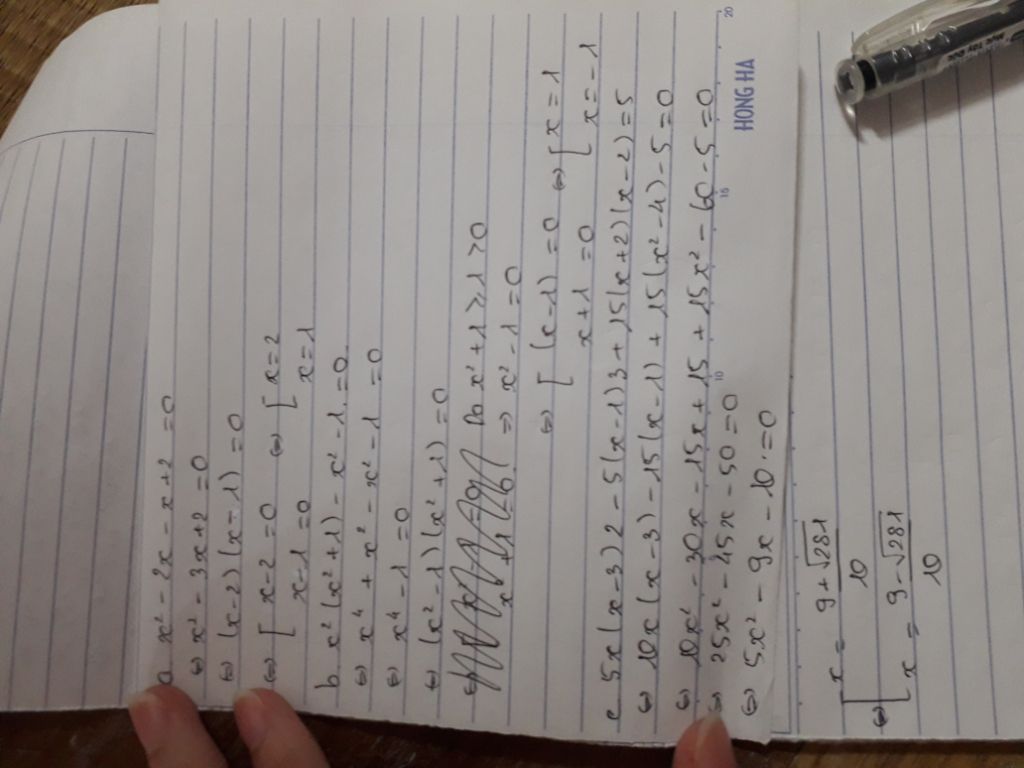 a. x² - 2x - x + 2 = 0
⇔ x² - 3x + 2 = 0
⇔ (x - 2)(x - 1) = 0
⇔ [ x - 2 = 0 ⇔ [ x = 2
x - 1 = 0 x = 1
b. x²(x² + 1) - x² - 1 = 0
⇔ x⁴ + x² - x² - 1 = 0
⇔ x⁴ - 1 = 0
⇔ (x² - 1)(x² + 1) = 0
Do x² + 1 ≥ 1 > 0
⇒ x² - 1 = 0
⇔ [ (x - 1) = 0 ⇔ [ x = 1
x + 1 = 0 x = -1
c. 5x(x - 3)2 - 5(x - 1)3 + 15(x + 2)(x - 2) = 5
⇔ 10x(x - 3) - 15(x - 1) + 15(x² - 4) - 5 = 0
⇔ 10x² - 30x - 15x + 15 + 15x² - 60 - 5 = 0
⇔ 25x² - 45x - 50 = 0
⇔ 5x² - 9x - 10 = 0
10 15 20
HONG HA
⇔ [ x = (9 + √281)/10
x = (9 - √281)/10